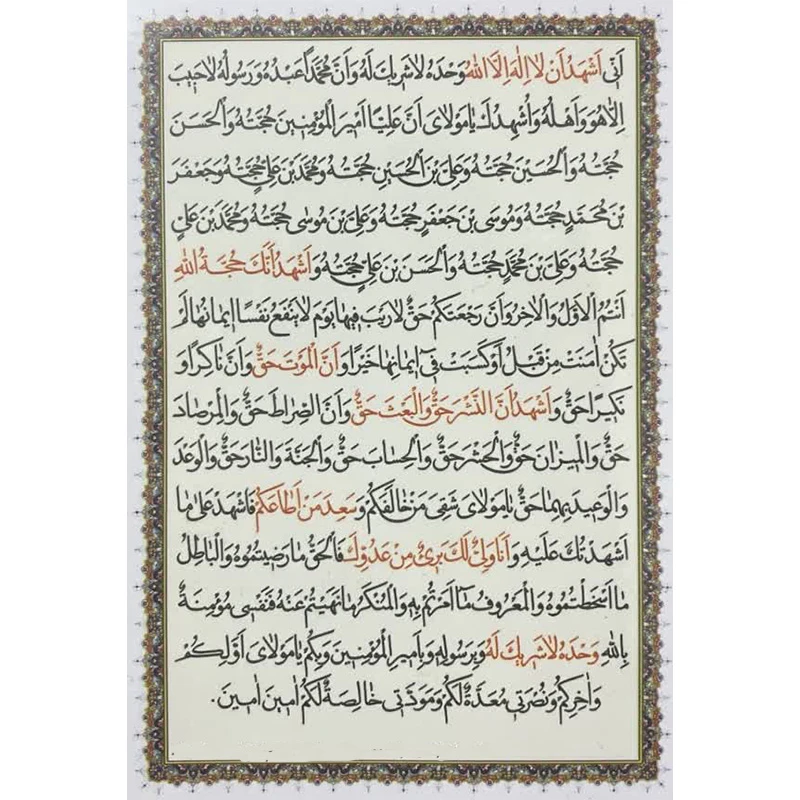 اَنّى اَشْهَدُ اَنْ لا اِلهَ اِلاَّ اللهُ وَحْدَهُ لا شَريكَ لَهُ وَاَنَّ مُحَمَّداً عَبْدُهُ وَرَسُولُهُ لا حَبيبَ
اِلاّ هُوَ وَاَهْلُهُ وَاُشْهِدُكَ يا مَوْلاىَ اَنَّ عَلِيّاً اَميرَ الْمُؤْمِنينَ حُجَّتُهُ وَالْحَسَنَ
حُجَّتُهُ وَالْحُسَيْنَ حُجَّتُهُ وَعَلِىَّ بْنَ الْحُسَيْنِ حُجَّتُهُ وَمُحَمَّدَ بْنَ عَلِىٍّ حُجَّتُهُ وَجَعْفَرَ
بْنَ مُحَمَّدٍ حُجَّتُهُ وَمُوسَى بْنَ جَعْفَرٍ حُجَّتُهُ وَعَلِىَّ بْنَ مُوسى حُجَّتُهُ وَمُحَمَّدَ بْنَ عَلِىٍّ
حُجَّتُهُ وَعَلِىَّ بْنَ مُحَمَّدٍ حُجَّتُهُ وَالْحَسَنَ بْنَ عَلِىٍّ حُجَّتُهُ وَاَشْهَدُ اَنَّكَ حُجَّةُ اللهِ
اَنْتُمُ الاَْوَّلُ وَالاْخِرُ وَاَنَّ رَجْعَتَكُمْ حَقٌّ لا رَيْبَ فيها يَوْمَ لا يَنْفَعُ نَفْسًا ايمانُها لَمْ
تَكُنْ امَنَتْ مِنْ قَبْلُ اَوْ كَسَبَتْ فى ايمانِها خَيْرًا وَاَنَّ الْمَوْتَ حَقٌّ وَاَنَّ ناكِرًا وَ
نَكيرًا حَقٌّ وَاَشْهَدُ اَنَّ النَّشْرَ حَقٌّ وَالْبَعْثَ حَقٌّ وَاَنَّ الصِّراطَ حَقٌّ وَالْمِرْصادَ
حَقٌّ وَالْميزانَ حَقٌّ وَالْحَشْرَ حَقٌّ وَالْحِسابَ حَقٌّ وَالْجَنَّةَ وَالنّارَ حَقٌّ وَالْوَعْدَ
وَالْوَعيدَ بِهِما حَقٌّ يا مَوْلاىَ شَقِىَ مَنْ خالَفَكُمْ وَسَعِدَ مَنْ اَطاعَكُمْ فَاشْهَدْ عَلى ما
اَشْهَدْتُكَ عَلَيْهِ وَاَنَا وَلِىٌّ لَكَ بَرىءٌ مِنْ عَدُوِّكَ فَالْحَقُّ ما رَضيتُمُوهُ وَالْباطِلُ
ما اَسْخَطْتُمُوهُ وَالْمَعْرُوفُ ما اَمَرْتُمْ بِهِ وَالْمُنْكَرُ ما نَهَيْتُمْ عَنْهُ فَنَفْسى مُؤْمِنَةٌ
بِاللهِ وَحْدَهُ لا شَريكَ لَهُ وَبِرَسُولِهِ وَبِاَميرِ الْمُؤْمِنينَ وَبِكُمْ يا مَوْلاىَ اَوَّلِكُمْ
وَاخِرِكُمْ وَنُصْرَتى مُعَدَّةٌ لَكُمْ وَمَوَدَّتى خالِصَةٌ لَكُمْ امينَ امينَ.